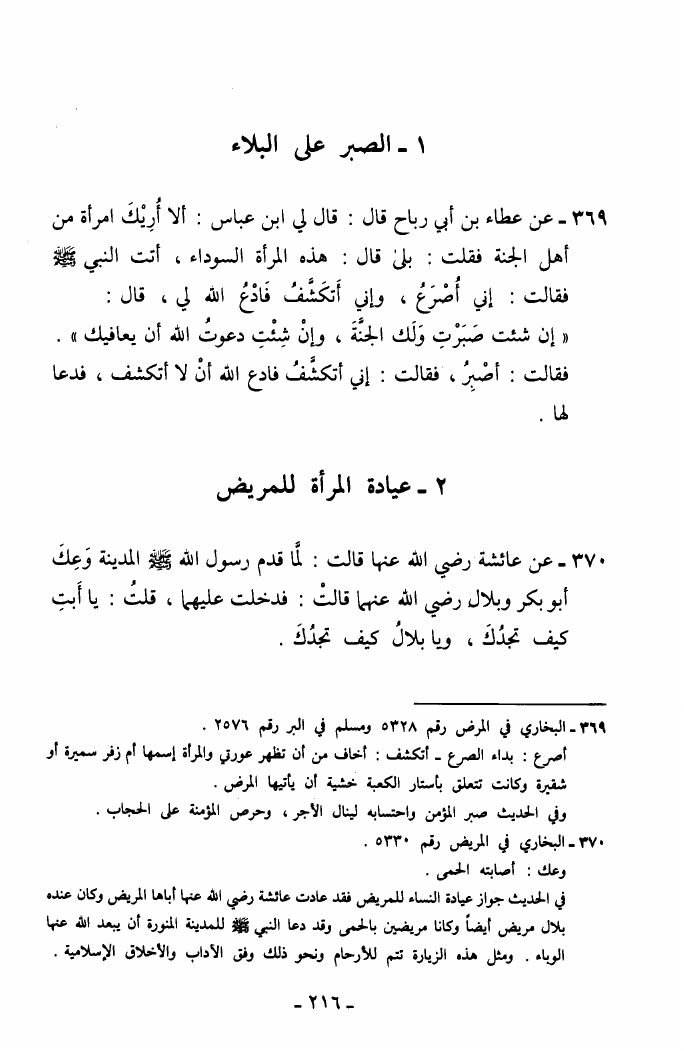 ١ ـ الصبر على البلاء
٣٦٩ ـ عن عطاء بن أبي رباح قال : قال لي ابن عباس : ألا أُرِيْكَ امرأة من
أهل الجنة فقلت : بلىٰ قال : هذه المرأة السوداء ، أتت النبي ﷺ
فقالت : إني أُصْرَعُ ، وإني أَتكَشَّفُ فَادْعُ الله لي ، قال :
« إن شئت صَبَرْتِ وَلَك الجنَّةَ ، وإنْ شِئْتِ دعوتُ الله أن يعافيك » .
فقالت : أصْبِرُ ، فقالت : إني أتكشَّفُ فادع الله أنْ لا أتكشف ، فدعا
لها .
٢ ـ عيادة المرأة للمريض
٣٧٠ ـ عن عائشة رضي الله عنها قالت : لمَّا قدم رسول الله ﷺ المدينة وَعِكَ
أبو بكر وبلال رضي الله عنهما قالتْ : فدخلت عليهما ، قلتُ : يا أَبتِ
كيف تجدُكَ ، ويا بلالُ كيف تجدُكَ .
٣٦٩ ـ البخاري في المرض رقم ٥٣٢٨ ومسلم في البر رقم ٢٥٧٦ .
أصرع : بداء الصرع ـ أتكشف : أخاف من أن تظهر عورتي والمرأة إسمها أم زفر سميرة أو
شقيرة وكانت تتعلق بأستار الكعبة خشية أن يأتيها المرض .
وفي الحديث صبر المؤمن واحتسابه لينال الأجر ، وحرص المؤمنة على الحجاب .
٣٧٠ ـ البخاري في المريض رقم ٥٣٣٠ .
وعك : أصابته الحمى .
في الحديث جواز عيادة النساء للمريض فقد عادت عائشة رضي الله عنها أباها المريض وكان عنده
بلال مريض أيضاً وكانا مريضين بالحمى وقد دعا النبي ﷺ للمدينة المنورة أن يبعد الله عنها
الوباء . ومثل هذه الزيارة تتم للأرحام ونحو ذلك وفق الآداب والأخلاق الإسلامية .
ـ ٢١٦ ـ